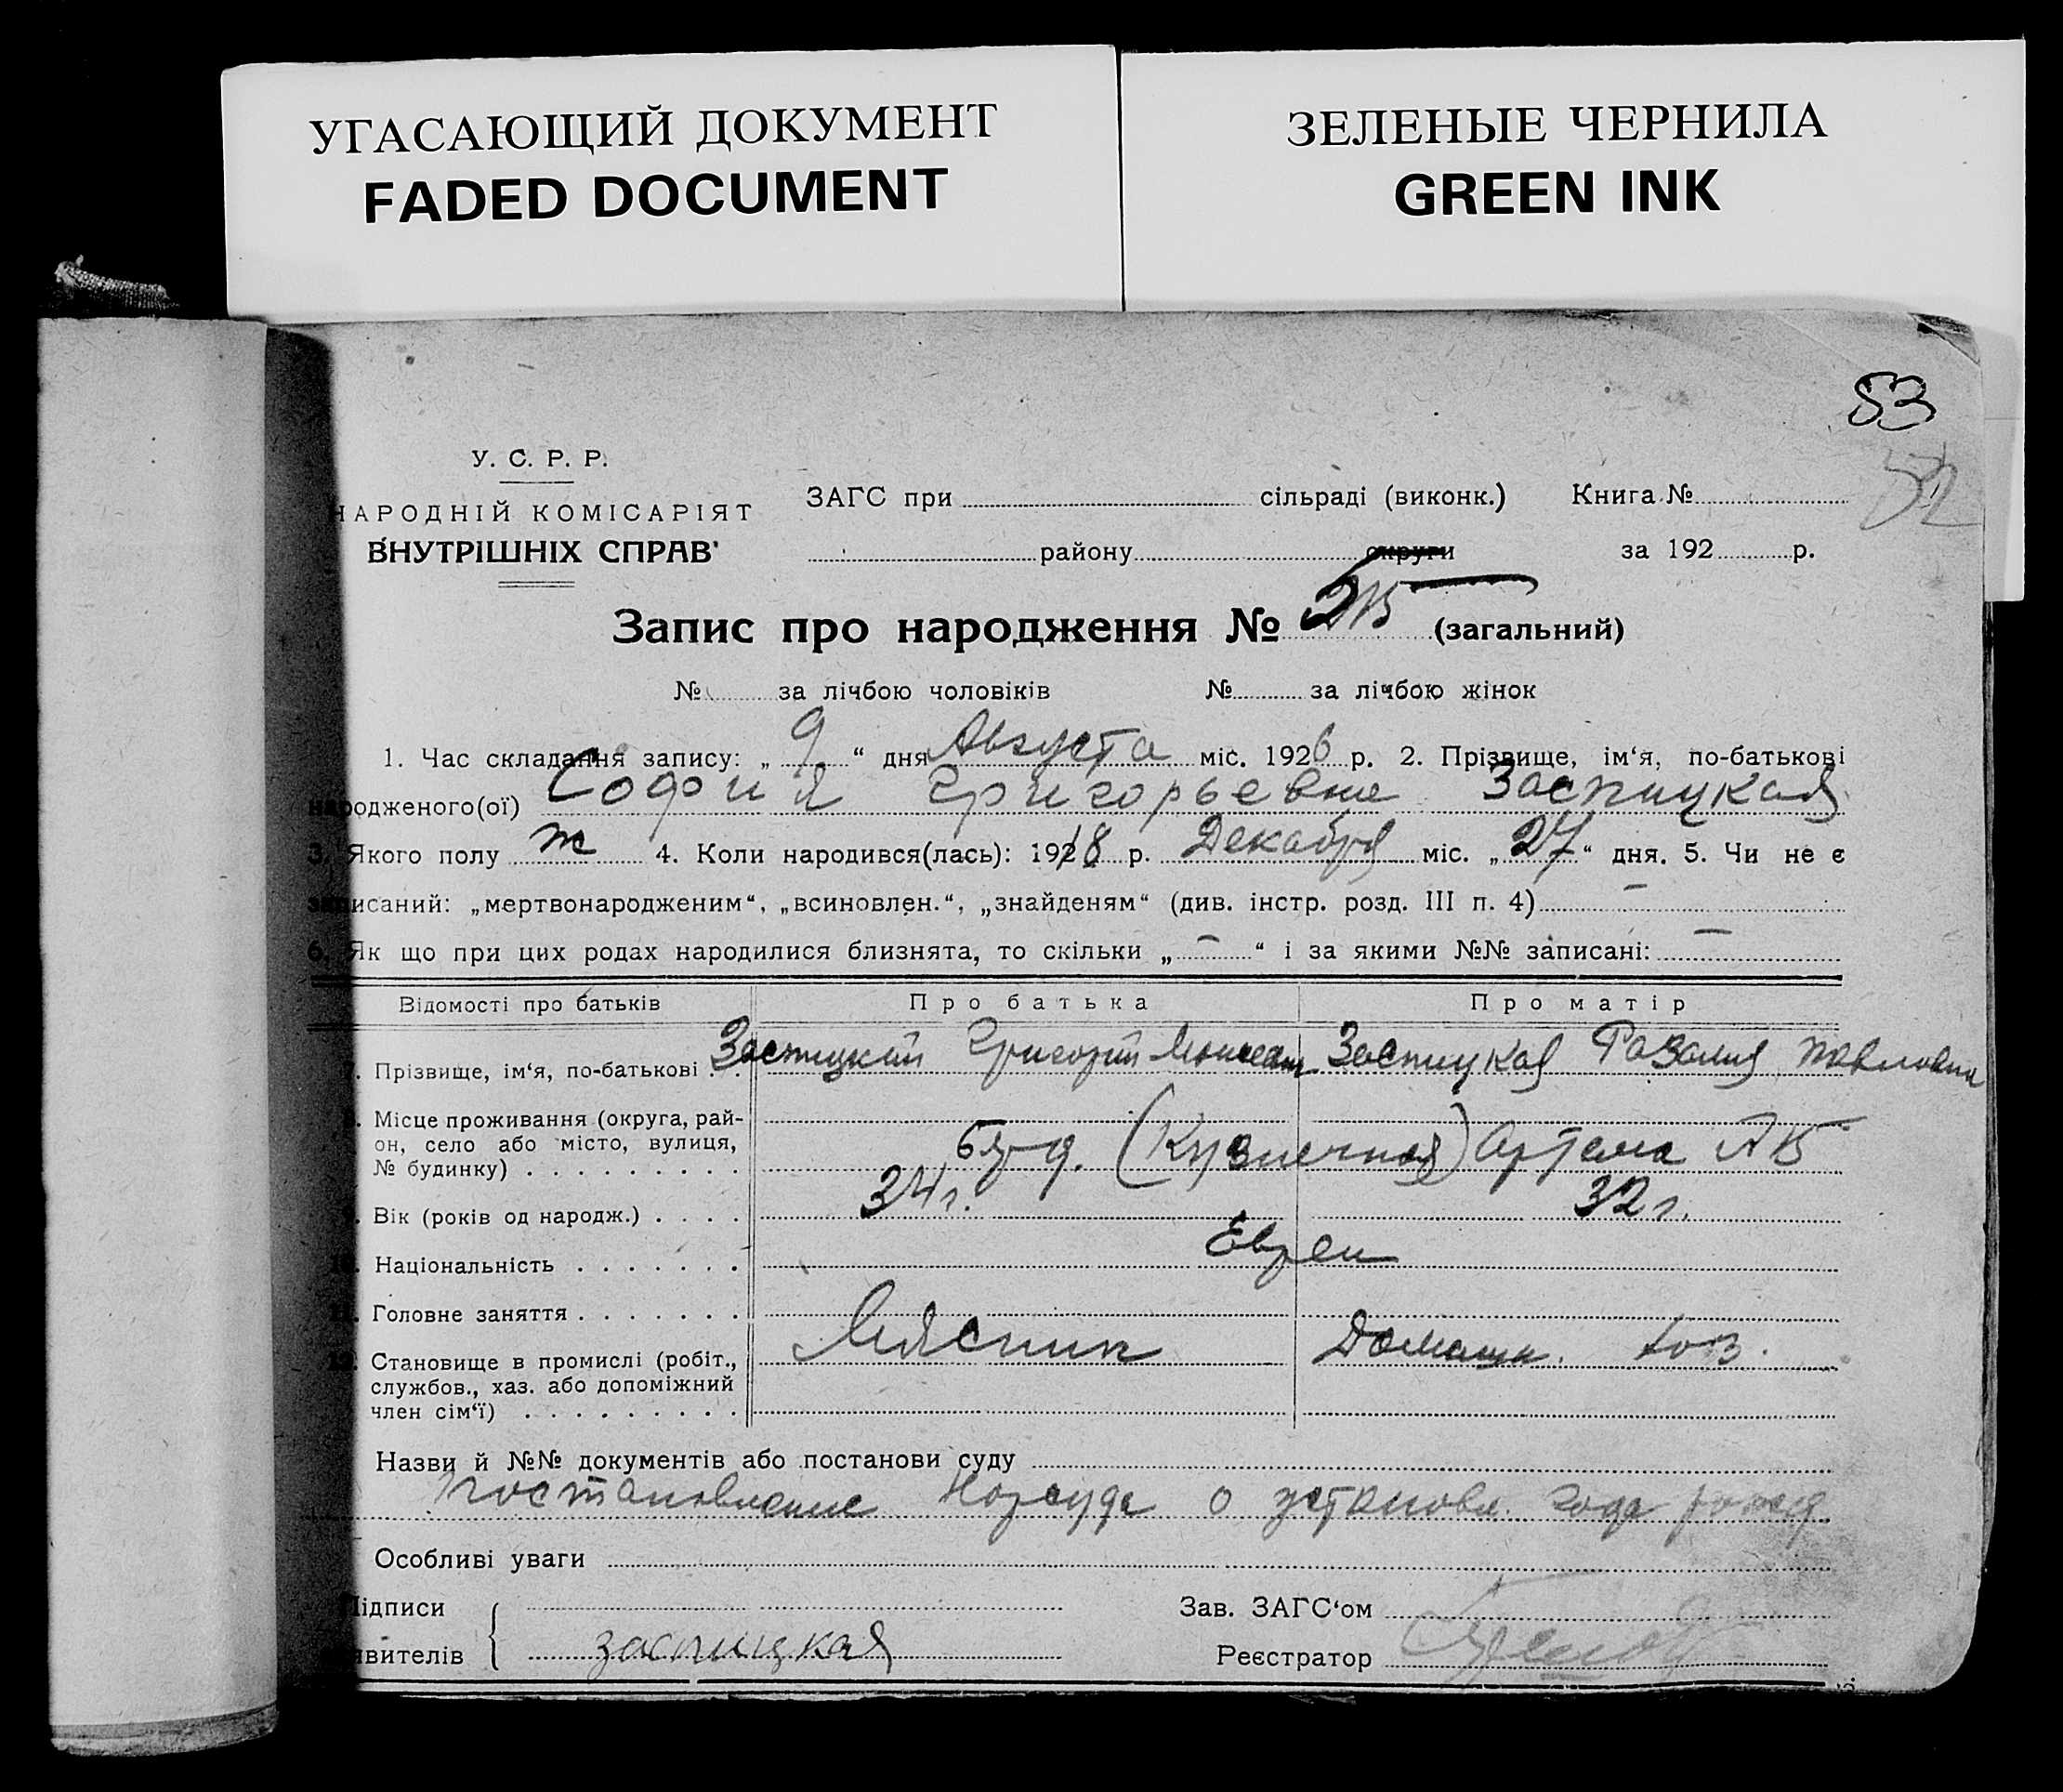 УГАСАЮЩИЙ ДОКУМЕНТ
FADED DOCUMENT
ЗЕЛЕНЫЕ ЧЕРНИЛА
GREEN INK
53
52
У. С. Р. Р.
НАРОДНІЙ КОМІСАРІЯТ
ВНУТРІШНІХ СПРАВ
ЗАГС при сільраді (виконк.) Книга №
району округи за 192 р.
Запис про народження № (загальний)
№ за лічбою чоловіків № за лічбою жінок
1. Час складання запису: „ 9 “ дня Августа міс. 1926 р. 2. Прізвище, ім‘я, по-батькові
народженого(ої) София Григорьевна Заспицкая
3. Якого полу ж 4. Коли народився(лась): 1918 р. Декабря міс. „ 27 “ дня. 5. Чи не є
записаний: „мертвонародженим“, „всиновлен.“, „знайденям“ (див. інстр. розд. III п. 4) –
6. Як що при цих родах народилися близнята, то скільки „ – “ і за якими №№ записані: –
Відомості про батьків Про батька Про матір
7. Прізвище, ім‘я, по-батькові . . Заспицкий Григорий Заспицкая Розалия Павловна
8. Місце проживання (округа, рай-
он, село або місто, вулиця,
№ будинку) . . . . . . . . . (Кузнечная) Артема
9. Вік (років од народж.) . . . . 34 г. 32 г.
10. Національність . . . . . . . Евреи
11. Головне заняття . . . . . . .
Мясник Домашн. хоз.
12. Становище в промислі (робіт.,
службов., хаз. або допоміжний
член сім‘ї) . . . . . . . . .
Назви й №№ документів або постанови суду
Постановление Нарсуда о установл. года рожд
Особливі уваги
Підписи
заявителів
Заспицкая
Зав. ЗАГС‘ом
Реєстратор